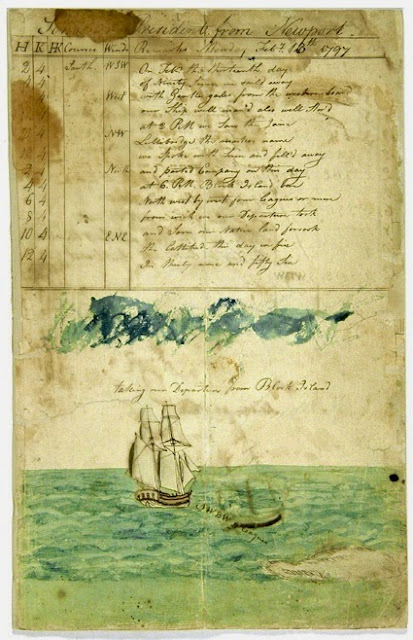 President from Newport
H K HK Course Winds Remarks Monday Feb.y 13th 1797
2 4 South WSW On Feb.y the thirteenth day
4 of Ninety seven we sail'd away
West with gentle gales from the western board
our Ship well man'd also well Stow'd
4 NW at 2 PM we Saw the Jane
Lillibridge the master name
4 we spoke with him and fill'd away
2 4 North and parted Company on this day
4 4 at 6 PM Block Island bore
6 4 North west by west four leagues or more
8 4 from which we our Departure took
10 4 ENE and Saw our Native land forsook
12 4 the Lattitude this day
In thirty nine and fifty Six
taking our Departure from Block Island
NWBW 4 Leagues